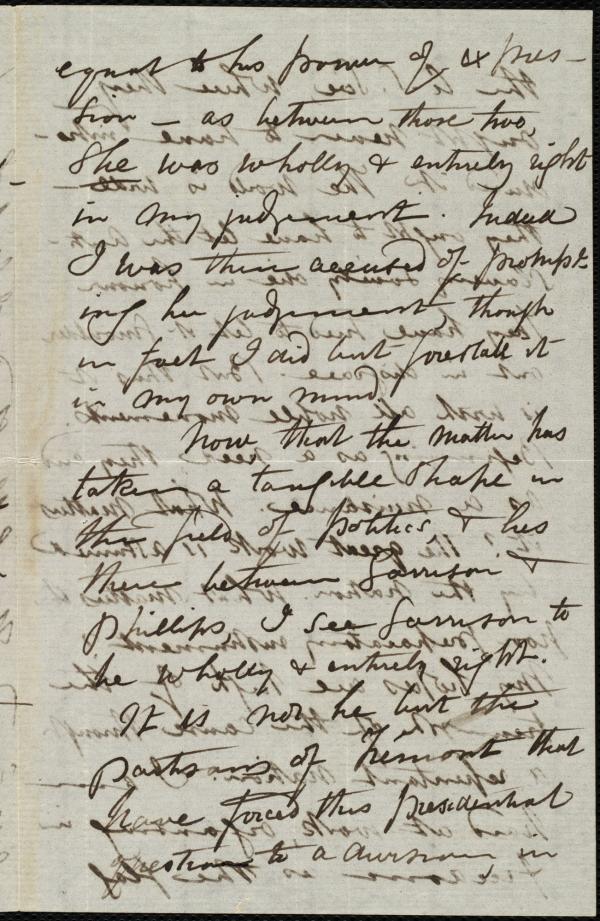 equal to his power of expres-
sion — as between those two,
She was wholly & entirely right
in my judgement. Indeed
I was then accused of prompt-
ing her judgement though
in fact I did but forestall it
in my own mind.
Now that the matter has
taken a tangible shape in
the field of politics & lies
there between Garrison &
Phillips, I see Garrison to
be wholly & entirely right.
It is not he but the
partisans of Fremont that
have forced this presidential
question to a division in